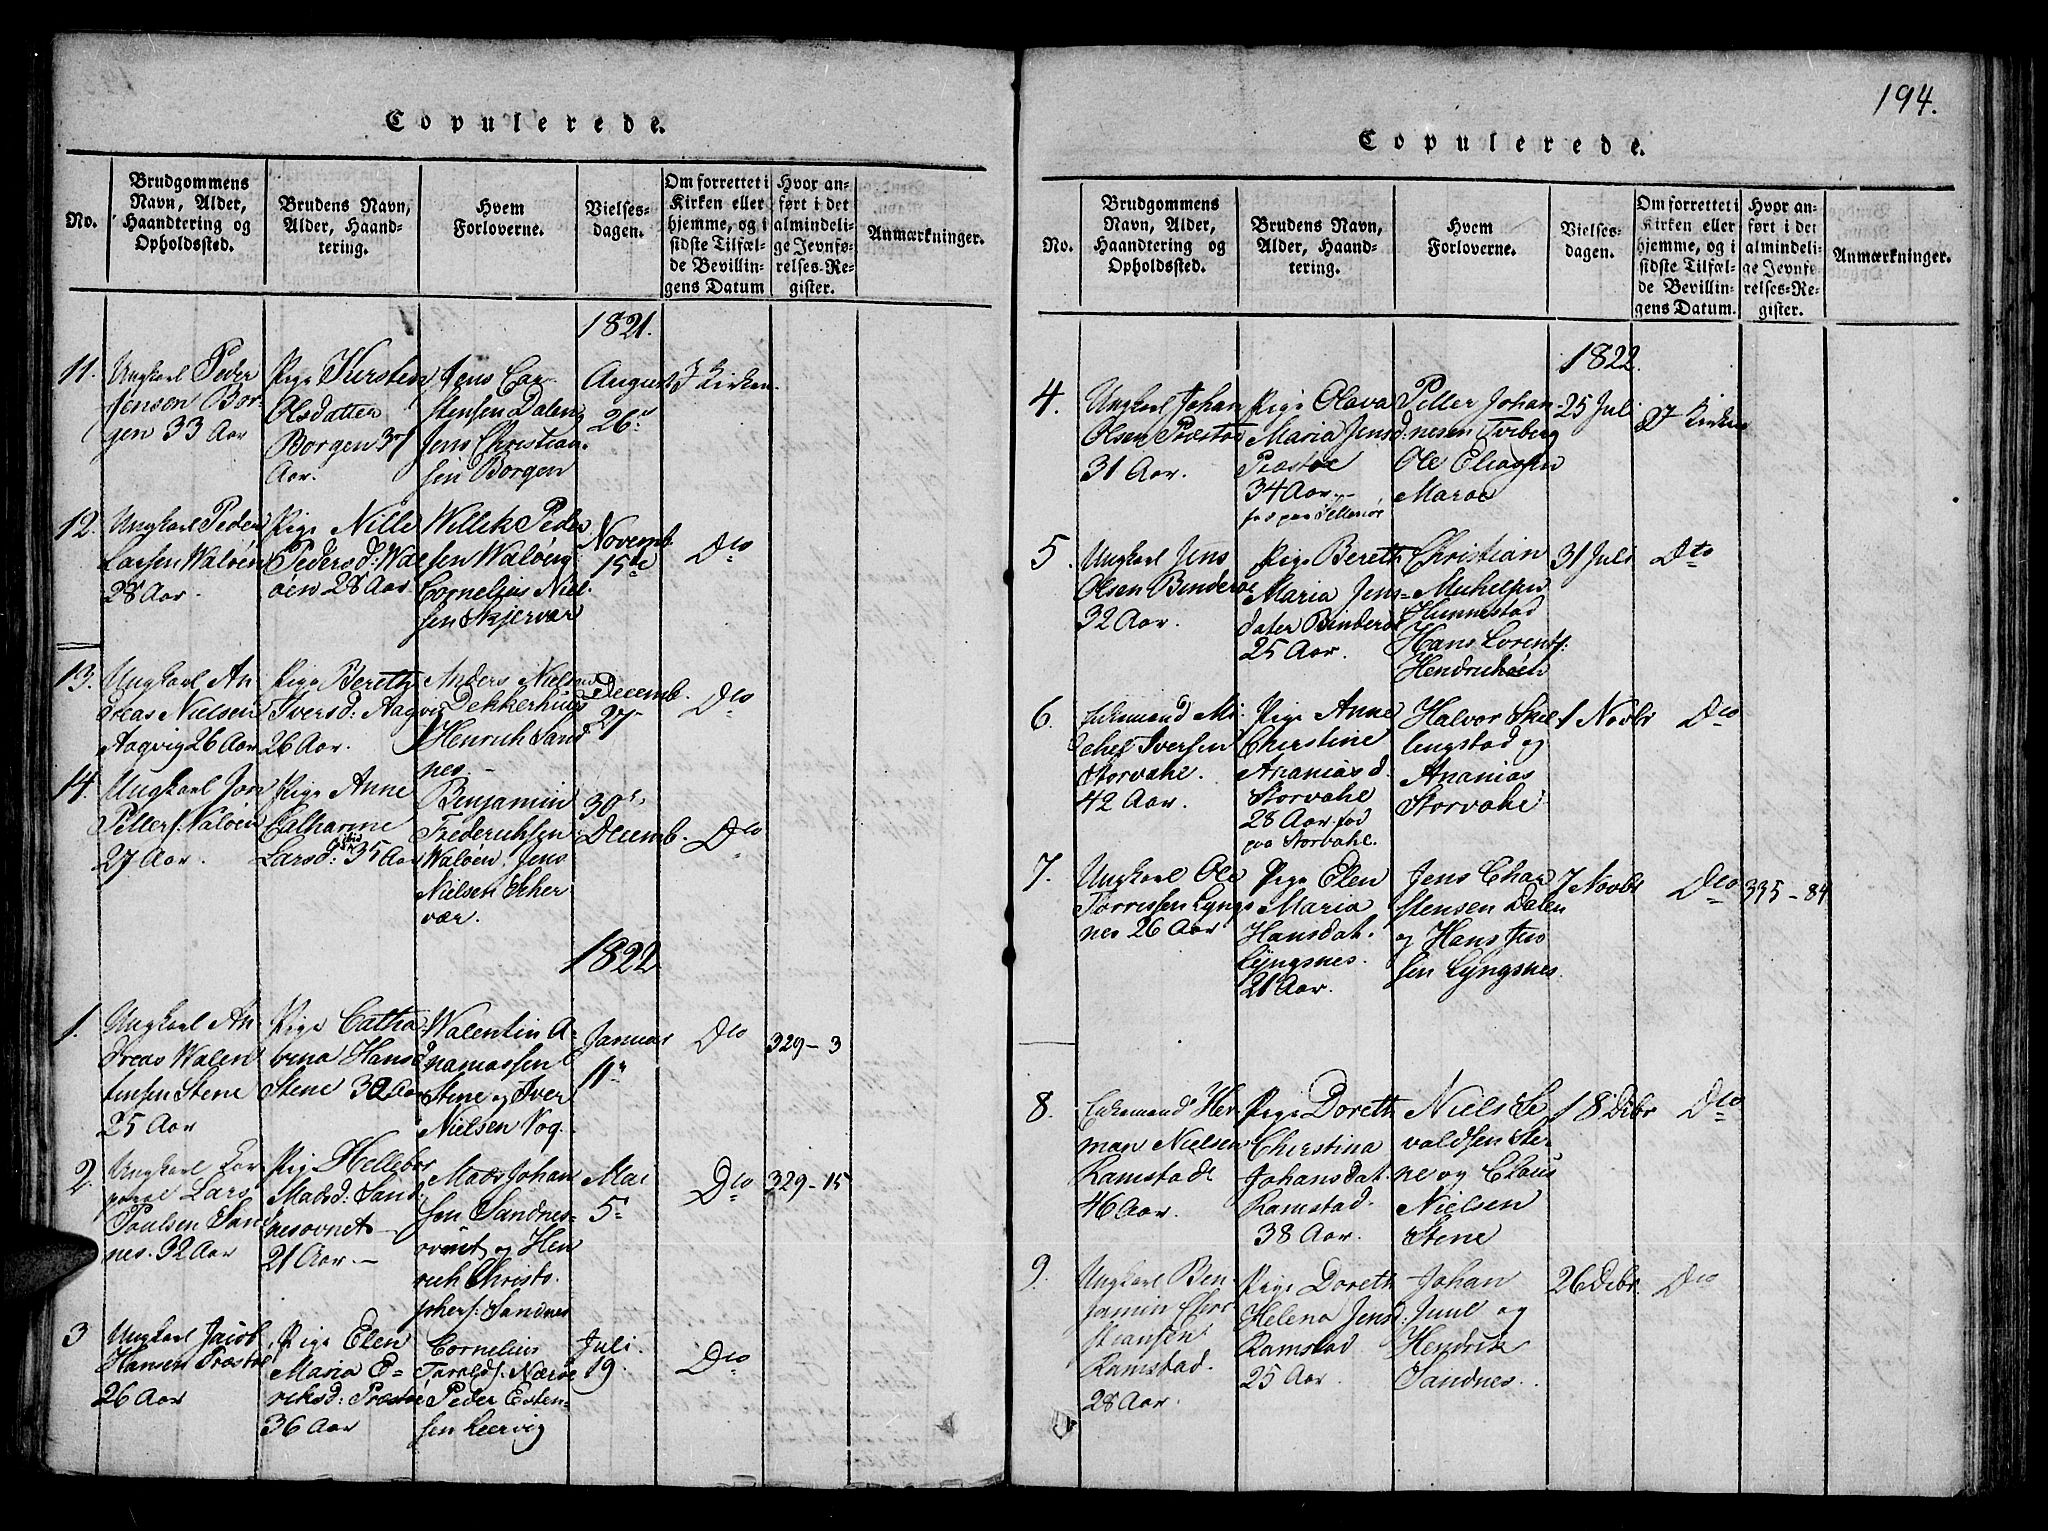 194.
Copulerede.
No.
Brudgommens Navn, Alder, Haandtering og Opholdssted.
Brudens Navn, Alder, Haandtering.
Hvem Forloverne.
Vielsesdagen.
Om forrettet i Kirken eller hjemme, og i sidste Tilfælde Bevillingens Datum
Hvor anført i det almindelige Jevnførelses-Register.
Anmærkninger.
1821.
11.
Ungkarl Peder
Jensen Bor-
gen 33 Aar
Pige Kirsten
Olsdatter
Borgen
Aar.
Jens Car-
stensen Dalen
Jens Christian-
sen Borgen
August
26
I Kirken
12.
Ungkarl Peder
Larsen Waløen
28 Aar.
Pige Nille
Pedersd: Wal-
øen 28 Aar
Willek Peder
sen Waløen
Cornelius Niel-
sen Skjervær
Novemb.
15de
Dto
13.
Ungkarl An-
dreas Nielsen
Aagvig 26 Aar
Pige Bereth
Iversd: Aagvig
26 Aar.
Anders Niels
Dekkerhuus
Henrich Sand
nes
Decemb.
27
Dto
14.
Ungkarl Jon
Petters: Waløen
27 Aar.
Pige Anne
Catharine
Larsd: 35 Aar
Benjamin
Frederichsen
Waløen, Jens
Nielsen
vær.
30
Decemb.
Dto
1822
1.
Ungkarl An-
dreas Walen
tinsen Stene
25 Aar
Pige Catha
rina Hansd
Stene 30 Aar
Walentin A-
naniassen
Stene og Iver
Nielsen Vog.
Januar
11
Dto
329-3
2.
Ungkarl
Lars
Paulsen San
nes. 32 Aar
Pige Hellebor
Madsd: Sand
nesovnet
21 Aar.-
Mads Johan
sen Sandnes-
ovnet og Hen
rich Christo-
phers: Sandnes
Mai
5
Dto
329-15
3
Ungkarl Jacob
Hansen Præstøe
26 Aar
Pige Elen
Maria E-
richsd: Præstøe
36 Aar
Cornelius
Tarelds: Nærøe
Peder Esten-
sen Leervig
Juli.
19.
Dto
Copulerede.
No.
Brudgommens Navn, Alder, Haandtering og Opholdssted.
Brudens Navn, Alder, Haandtering.
Hvem Forloverne.
Vielsesdagen.
Om forrettet i Kirken eller hjemme, og i sidste Tilfælde Bevillingens Datum.
Hvor anført i det almindelige Jevnførelses-Register.
Anmærkninger.
1822.
4.
Ungkarl Johan
Olsen Præstøe
31 Aar.
Pige Olava
Maria Jensd:
Præstøe
34 Aar.
Petter Johan-
nesen Tviberg
Ole Eliasen
Marøe
25 Juli
I Kirken
5.
Ungkarl Jens
Olsen Binderøe
32 Aar.
Pige Bereth
Maria Jens-
dater Binderøe
25 Aar.
Christian
Michelsen
Hummestad
Hans Lorents:
Hendrichøen
31 Juli
Dto
6.
Enkemand Mi-
chel Iversen
Storvahl.
42 Aar.
Pige Anne
Cherstine
Ananias d.
Storvahl
28 Aar. fød
paa Storvahl.
Halvor Skil
lengstad og
Ananias
Storvahl
1 Novbr
Dto
7.
Ungkarl Ole
Torrissen Lyngs
nes 26 Aar
Pige Elen
Maria
Hansdat.
Lyngsnes.
21 Aar.
Jens Char
stensen Dalen
og Hans Jen
sen Lyngsnes.
7 Novbr
Dto
335-84
8.
Enkemand Her-
man Nielsen
Ramstad
46 Aar.
Pige Doreth
Cherstina
Johansdat.
Ramstad.
38 Aar.
Niels E
valdsen Ste-
ne og Claus
Nielsen
Stene
18 Debr
Dto
9.
Ungkarl Ben
jamin Chri-
stiansen
Ramstad.
28 Aar.
Pige Doreth
Helena Jensd:
Ramstad
25 Aar.
Johan
Juul og
Hendrik
Sandnes.
26 Debr.
Dto